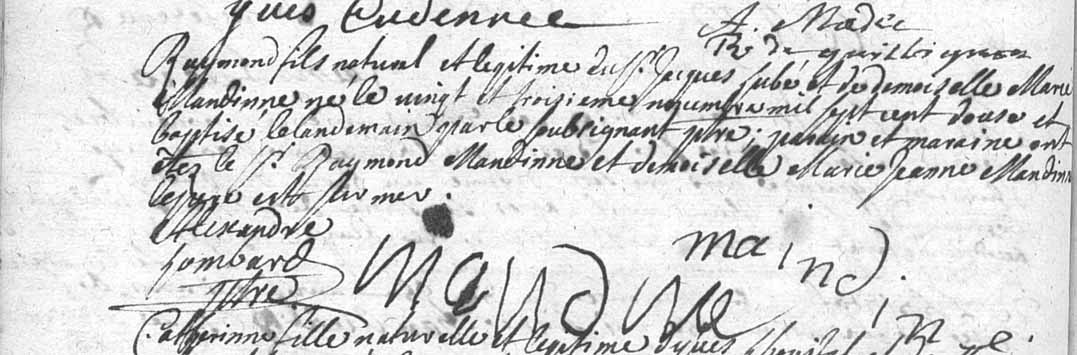 yves
A. Madec
Raymond fils natural et legitime du Sr. Jacques Jubé et de demoiselle Marie
Mandinne né le vingt et troisieme novembre mil sept cent douse et
baptisé le landemain par le soubsignant ptre; parain et maraine ont
étez le Sr. Raymond Mandinne et demoiselle Marie Jeanne Mandinn
le pere est sur mer.
Allexandre
Lombard
ptre
Catherinne fille naturelle et legitime d'yves